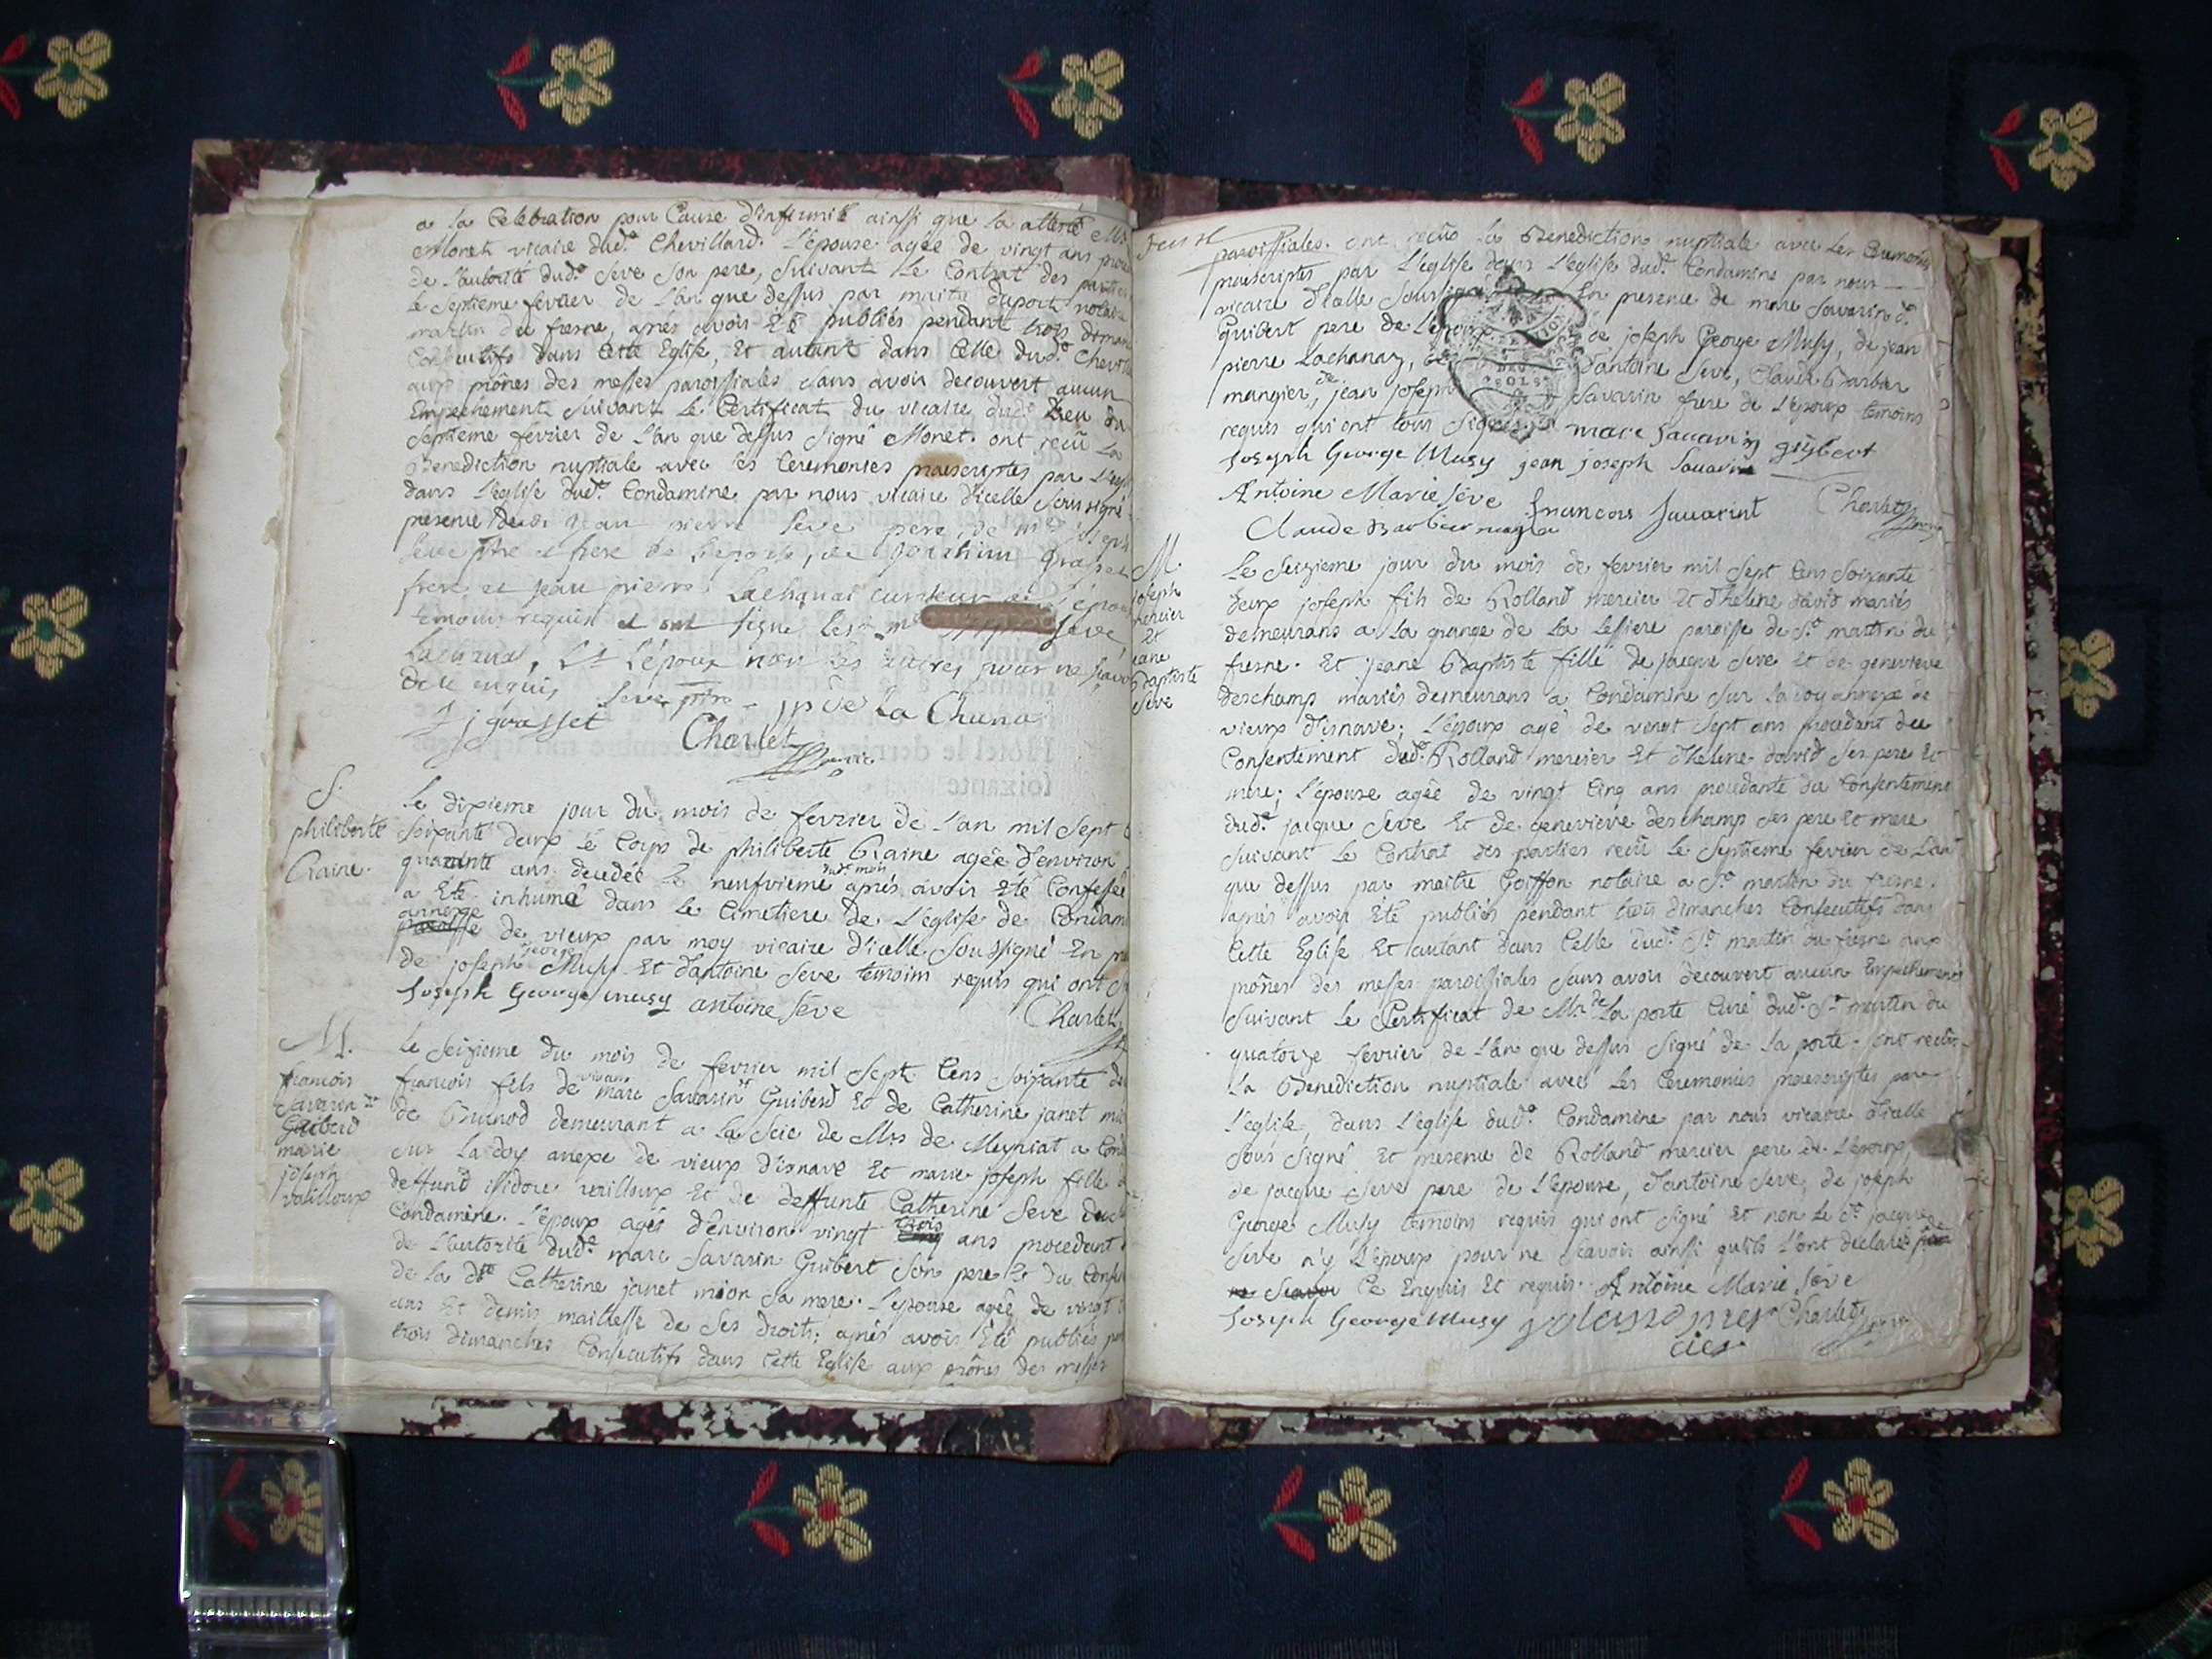 a la Celebration pour Cause d'infirmité ainsi que la attesté Mr
Monet vicaire dud.t Chevillard. L'épouse agée de vingt ans
de L'autorité dud.t Seve Son pere, Suivant Le Contrat des parties
le Septieme fevrier de L'an que dessus par maitre duport notaire
martin du fresne, aprés avoir Eté publiés pendant trois diman
Consecutifs dans Cette Eglise, Et autant dans Celle dud.t Chevill
aux prônes des messes paroissiales Sans avoir decouvert aucun
Empechement Suivant Le Certificat du vicaire dud.t Lieu du
Septieme fevrier de L'an que dessus Signé Monet. ont reçû La
Benediction nuptiale avec les Ceremonies praescriptes par L'egl
dans L'eglise dud.t Condamine par nous vicaire d'icelle Soussigné
presence de jean pierre Seve pere, de mr joseph
Seve ptre et frere de L'epouse, de joachim Grasset
frere et jean pierre Lachanal curateur de L'épou
temoins requis et ont signé les.t mr Seve
Lachanal, Et L'époux non les autres pour ne scavoir
de ce enquis Seve ptre jp Sève La Chana
J j grasset Charlet vic.
S.
philiberte
Craine.
Le dixieme jour du mois de fevrier de L'an mil Sept C
Soixante deux le Corps de philiberte Craine agée d'environ
quarante ans decedée le neufvieme dud. mois aprés avoir Eté Confessée
a Eté inhumé dans Le Cimetiere de L'église de Condam
annexe
paroisse de vieux par moy vicaire d'icelle Soussigné En pr
de joseph george Musy Et d'antoine Seve temoins requis qui ont S
Joseph George musy antoine Séve
Charlet
M.
francois
Savarin
Guiberd
marie
joseph
vailloux
Le Seizieme du mois de fevrier mil Sept Cens Soixante de
francois fils de vivant marc Savarin Guiberd Et de Catherine janet mi
de Brenod demeurant a La Scie de Mrs de Meyriat a Cond
sur La doy anexe de vieux d'isnave Et marie joseph fille d
deffund isidore vailloux Et de deffunte Catherine Seve du
Condamine. L'époux agés d'environ vingt trois ans procedant
de L'autorité dud.t marc Savarin Guibert Son pere Et du Conse
de La d.te Catherine janet mion Sa mere. L'epouse agée de vingt
ans Et demis maitresse de Ses droits; aprés avoir Eté publiés p
trois dimanches Consecutifs dans Cette Eglise aux prônes des messes
paroissiales. ont reçûs la Benediction nuptiale avec Les Ceremonies
praescriptes par L'eglise dans L'eglise dud.t Condamine par nous
vicaire d'icelle Soussigné En presence de marc Savarin d.t
Guibert pere de L'epoux de joseph George Musy, de jean
pierre Lachanaz, d'antoine Seve, Claude Barbier
mangier, jean joseph Savarin frere de L'époux temoins
requis qui ont tous Signés. marc Sauarin guybert
Joseph George Musy jean joseph Sauarin
Antoine Marie Séve francois Sauarint Charlet
Claude Barbier
M.
joseph
mercier
Et
jeane
Baptiste
Seve
Le Seizieme jour du mois de fevrier mil Sept Cens Soixante
deux joseph fils de Rolland mercier Et d'helene david mariés
demeurans a La grange de La Lessiere paroisse de S.t martin du
fresne. Et jeane Baptiste fille de jacque Seve Et de genevieve
deschamp mariés demeurans a Condamine Sur La doy annexe de
vieux d'isnave; L'époux agé de vingt Sept ans procedant du
Consentement dud.t Rolland mercier Et d'helene david Ses pere Et
mere; L'épouse agée de vingt Cinq ans procedante du Consentement
dud.t jacque Seve Et de genevieve deschamp Ses pere Et mere
Suivant Le Contrat des parties reçû Le Septieme fevrier de L'an
que dessus par maitre Goiffon notaire a S.t martin du fresne.
aprés avoir Eté publiés pendant trois dimanches Consecutifs dans
Cette Eglise Et autant dans Celle dud.t S.t martin du fresne aux
prônes des messes paroissiales Sans avoir decouvert aucun Empechement
Suivant Le Certificat de Mr de La porte Curé dud.t S.t martin du
quatorze fevrier de L'an que dessus Signé de La porte. ont reçûs
La Benediction nuptiale avec Les Ceremonies praescriptes par
L'eglise, dans L'eglise dud.t Condamine par nous vicaire d'icelle
Sous Signé Et presence de Rolland mercier pere de L'époux,
de jacque Seve pere de L'épouse, d'antoine Seve, de joseph
George Musy temoins requis qui ont Signé Et non Le d.t jacque
Seve n'y L'époux pour ne Scavoir ainsi qu'ils L'ont declaré
ne Scavoir Ce Enquis Et requis. Antoine Marie Séve
Joseph George Musy rolan mer Charlet
cier